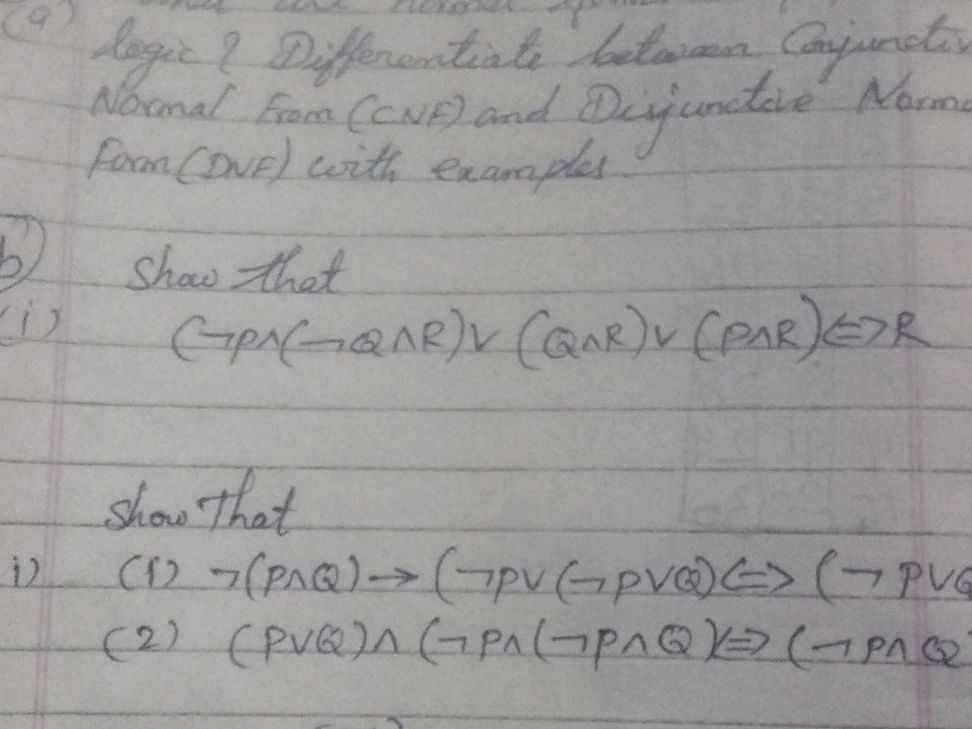 (a) are normal
logic? Differentiate between Conjunctiv
Normal From (CNF) and Disjunctive Norma
Form (DNF) with examples.
b) Show that
(i) (¬P∧(¬Q∧R)∨ (Q∧R)∨ (P∧R)⇔R
Show that
i) (1) ¬(P∧Q)→(¬P∨(¬P∨Q)⇔(¬P∨Q
(2) (P∨Q)∧(¬P∧(¬P∧Q)⇔(¬P∧Q)